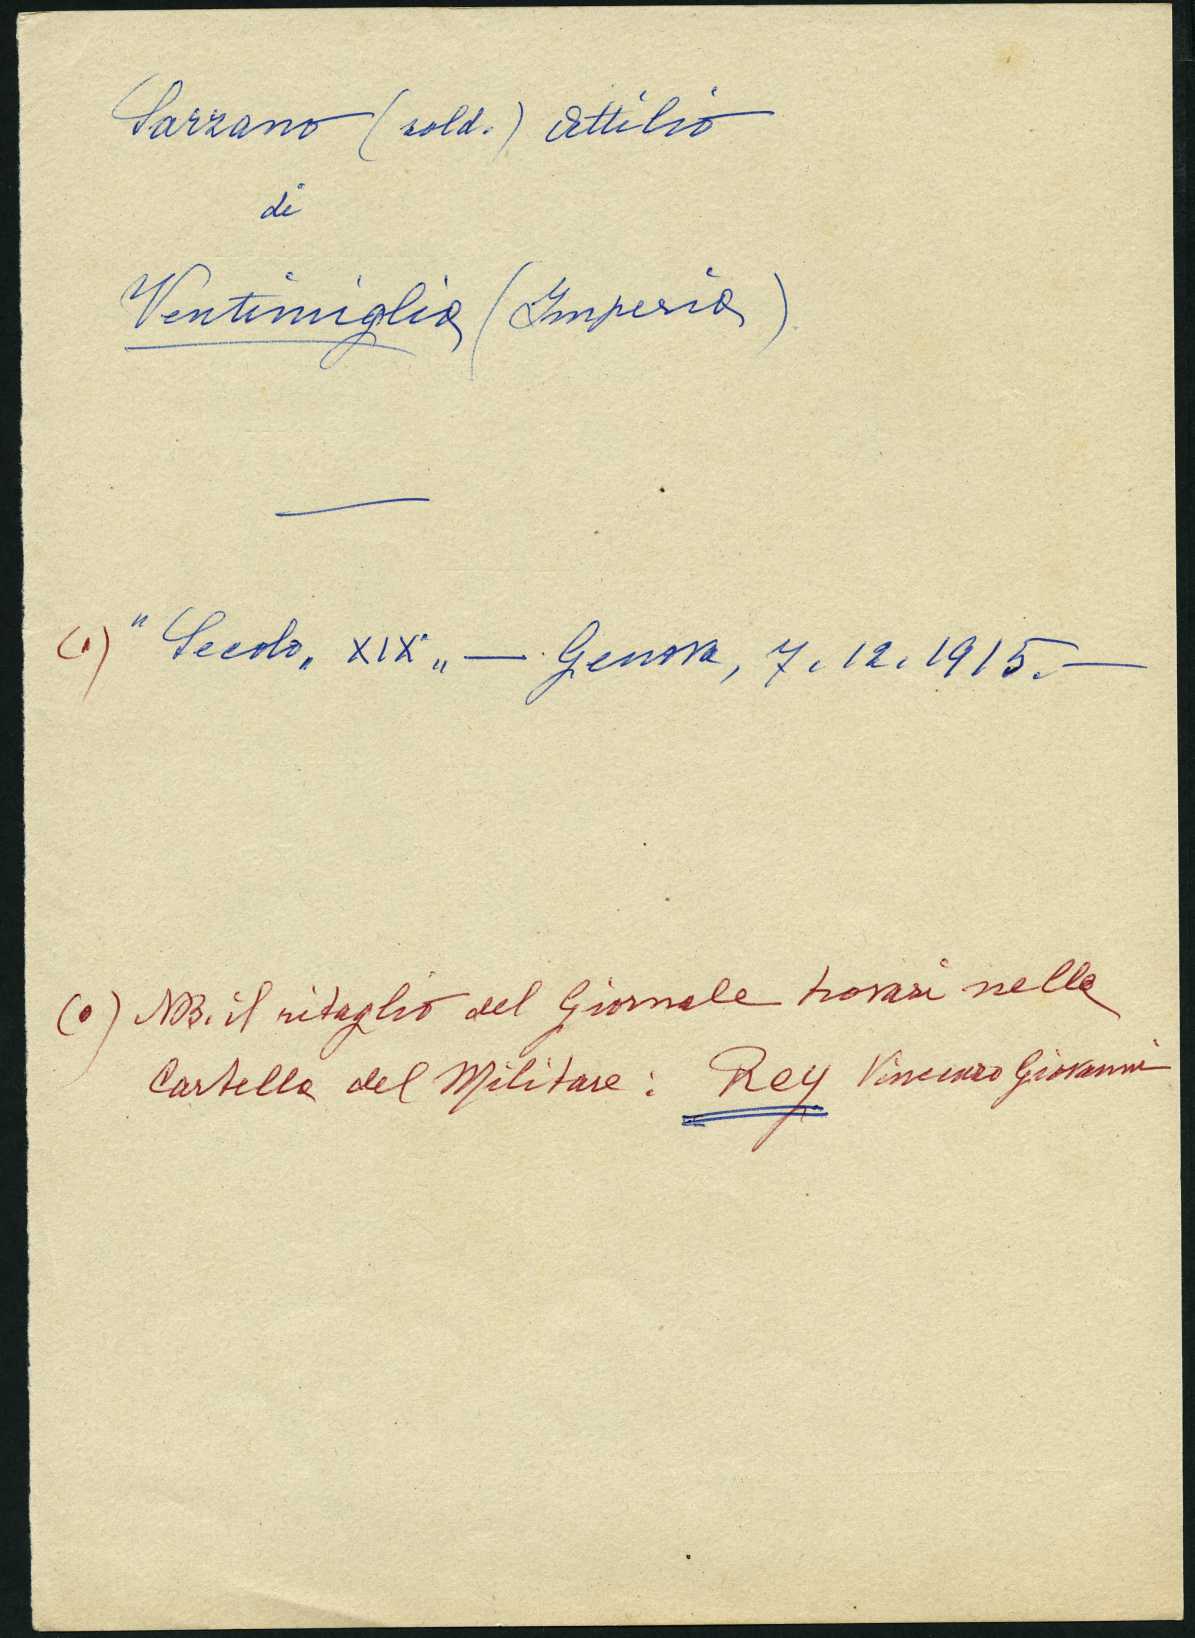 Sarzano (sold.) Attilio
di
Ventimiglia (Imperia)
(•) "Secolo„ XIX°„ — Genova, 7.12.1915.—
(•) NB. il ritaglio del Giornale trovasi nella
Cartella del Militare: Rey Vincenzo Giovanni